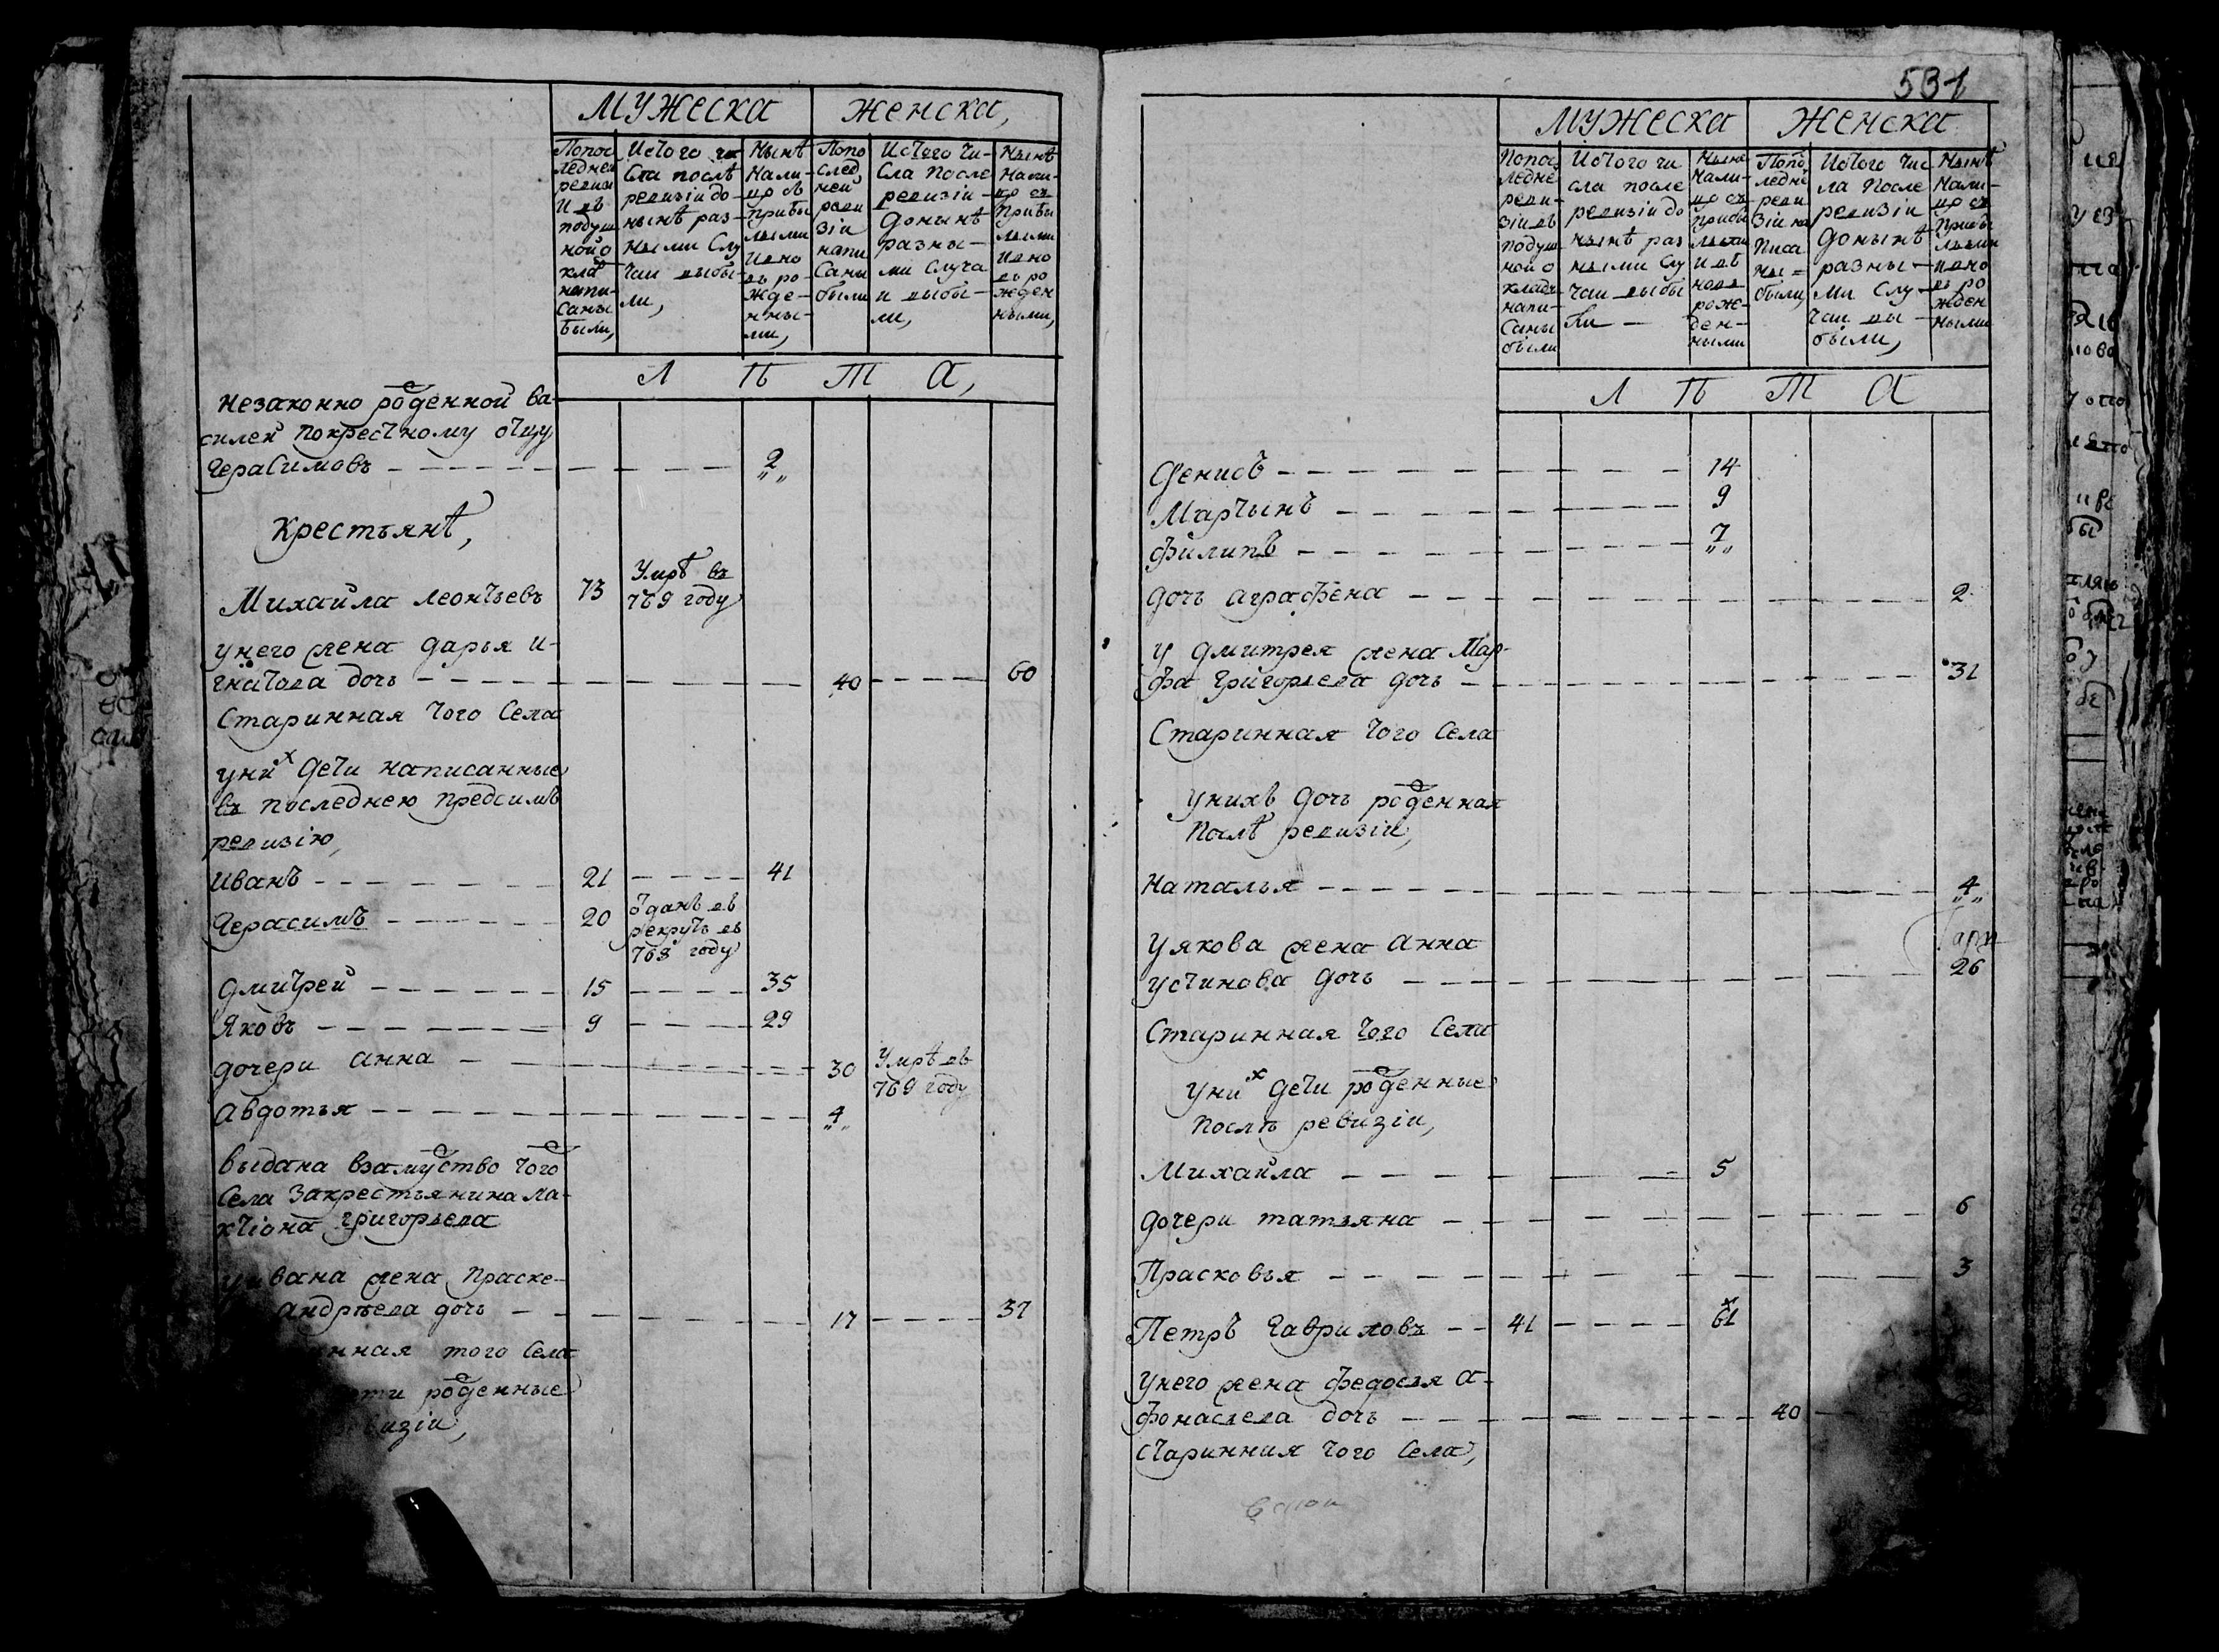 МУЖЕСКА ЖЕНСКА,
Попос
леднеи
ревизи
и въ
подуш
ной о
кла
напи-
саны
были,
Истого чи
сла послѣ
ревизіи до
нынѣ раз-
ными слу
чаи выбы-
ли,
Нынѣ
нали-
цо съ
прибы
лыми
и вно
въ ро-
жде-
нны-
ми,
Попо
след
ней
реви
зіи
напи
саны
были
Истого чи-
сла после
ревизіи
донынѣ
разны-
ми случа
и выбы-
ли,
Нынѣ
нали-
цо съ
прибы
лыми
и вно
въ ро
жден
ными,
Л Ѣ Т А,
незаконно рожденной ва-
силей покрестному отцу
Герасимовъ 2
Крестьянѣ,
Михайла Леонтьевъ 73 Умрѣ въ
769 году
унего жена дарья и-
гнатова дочь 40 60
Старинная того села
унихъ дети написанные
въ последнею предсимъ
ревизію,
Иванъ 21 41
Герасимъ 20 отданъ въ
рекрутъ въ
768 году
Дмитрей 15 35
Яковъ 9 29
дочери анна 30 Умрѣ въ
769 году
авдотья 4
выдана взамуство того
села закрестьянина ла-
ктіона григорьева
вана жена праске-
андрѣева дочь 17 37
нная того села
ти рожденные
визіи,
531
МУЖЕСКА ЖЕНСКА
Попос
ледне
реви-
зіи въ
подуш
ной о
кладъ
напи-
саны
были
Истого чи
сла после
ревизіи до
нынѣ раз
ными слу
чаи выбы
ли
Ныне
нали-
цо съ
прибы
лыми
и въ
новѣ
рож-
ден-
ными
Попо
ледне
реви
зіи на
писа
ны
были,
Истого чис
ла после
ревизіи
донынѣ
разны-
ми слу-
чаи вы-
были,
Нынѣ
нали-
цо съ
прибы
лыми
и вно
въ ро
жден
ными
Л Ѣ Т А
Денисъ 14
Мартынъ 9
Филипъ 7
дочь аграфена 2
у дмитрея жена Мар-
фа Григорьева дочь 31
Старинная того села
унихъ дочь рожденная
послѣ ревизіи,
Наталья 4
Уякова жена анна
устинова дочь 26
Старинная того села
унихъ дети рожденные
послѣ ревизіи,
Михайла 5
дочери татьяна 6
Прасковья 3
Петръ Гавриловъ 41 61
унего жена федосья а-
фонасьева дочь 40
старинная того села,